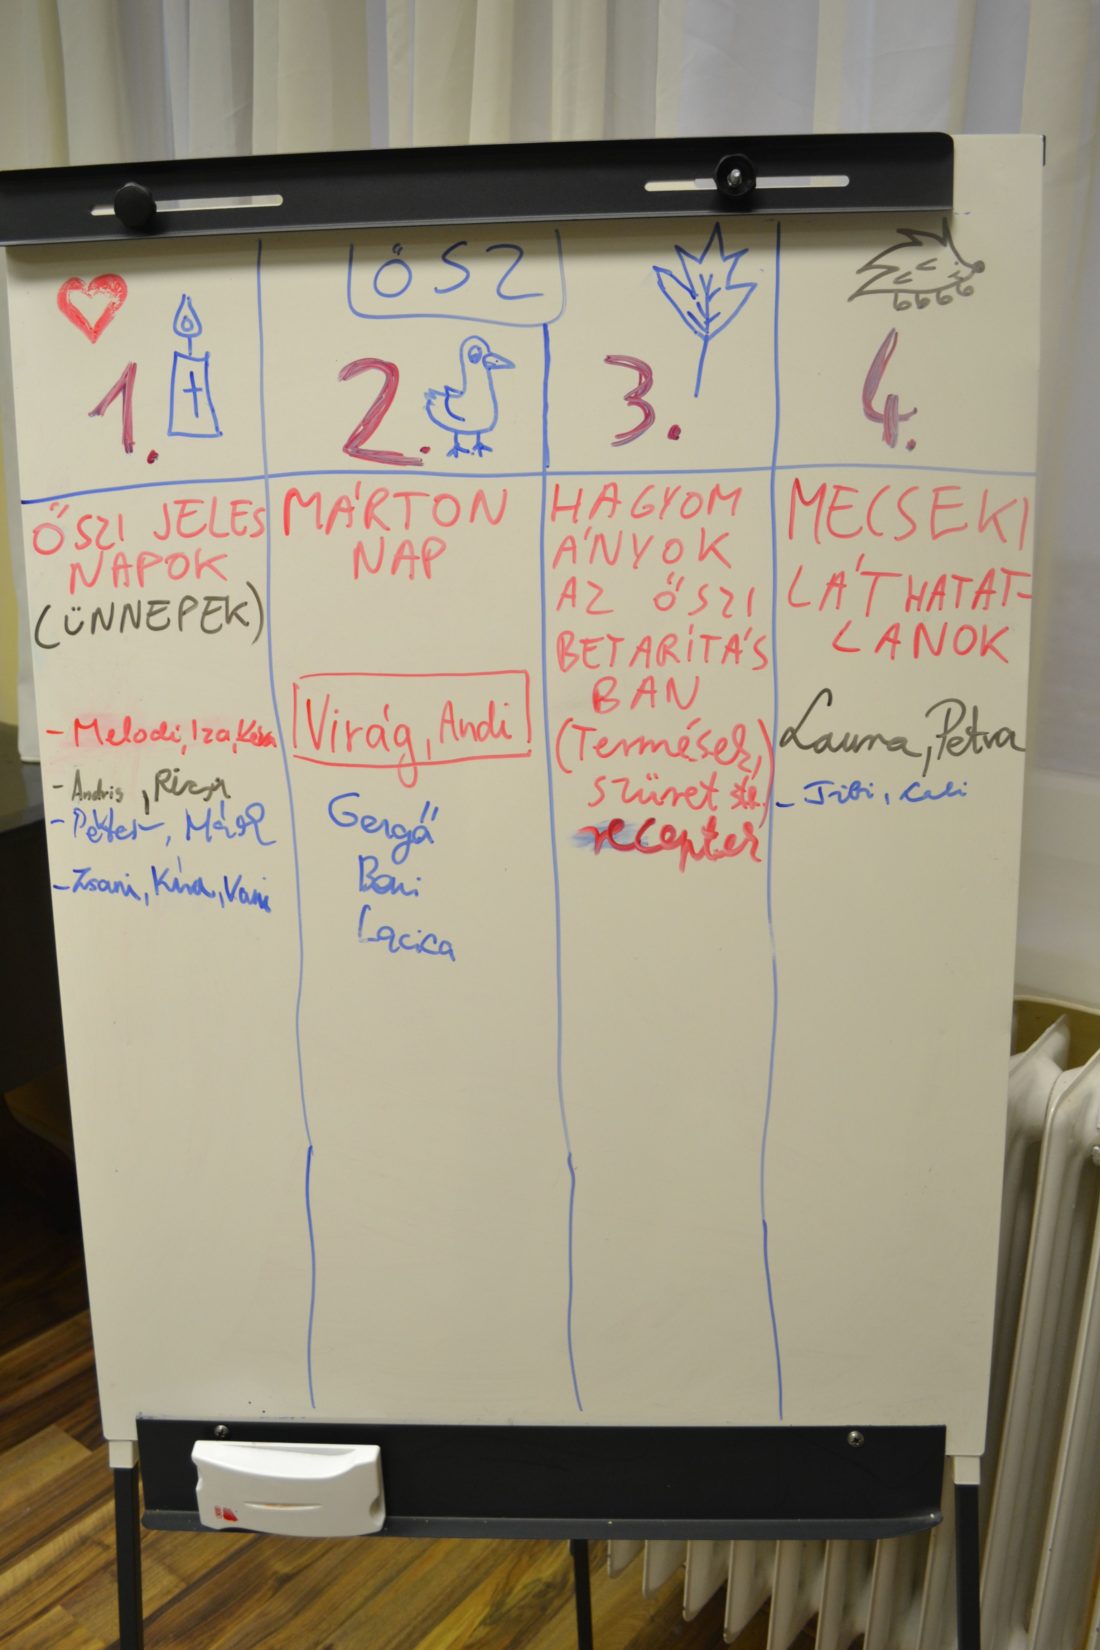 ŐSZ
1.
ŐSZI JELES
NAPOK
(ÜNNEPEK)
- Melodi, Iza, Kira
- Andris,
- Péter, Márk
- Zsani, Kira, Vani
2.
MÁRTON
NAP
Virág, Andi
Gergő
Beni
Lacica
3.
HAGYOM
ÁNYOK
AZ ŐSZI
BETARÍTÁS
BAN
(Termések,
szüret stb.)
receptek
4.
MECSEKI
LÁTHATAT-
LANOK
Laura, Petra
- Tibi,